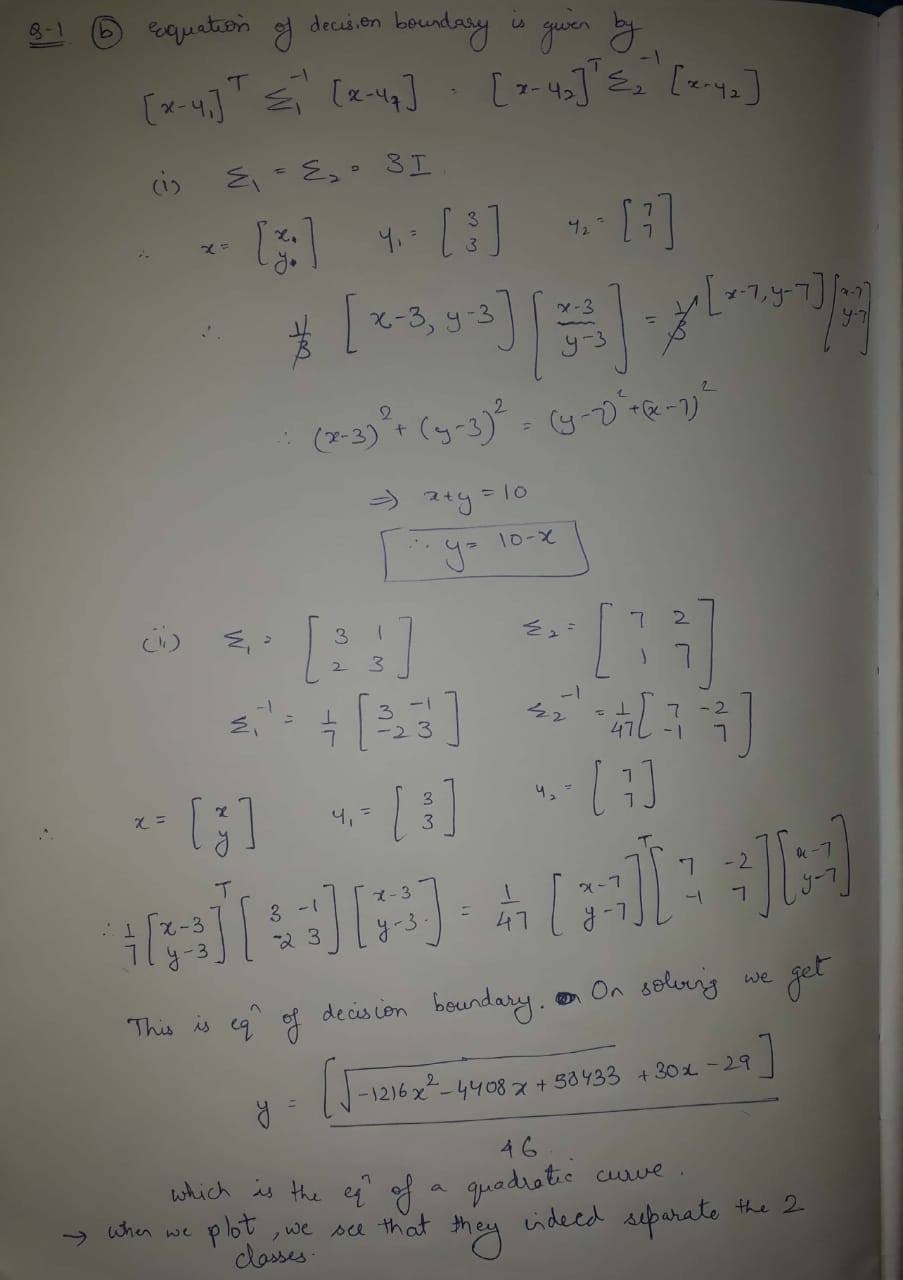 Q-1 (b) equation of decision boundary is given by
[x-μ₁]ᵀ Σ₁⁻¹ [x-μ₁] = [x-μ₂]ᵀ Σ₂⁻¹ [x-μ₂]
(i) Σ₁ = Σ₂ = 3I
∴ x = [x, y] μ₁ = [3 3] μ₂ = [7 7]
∴ 1/3 [x-3, y-3] [x-3 y-3] = 1/3 [x-7, y-7] [x-7 y-7]
∴ (x-3)² + (y-3)² = (y-7)² + (x-7)²
⇒ x+y = 10
∴ y = 10-x
(ii) Σ₁ = [3 1; 2 3] Σ₂ = [7 2; 1 7]
Σ₁⁻¹ = 1/7 [3 -1; -2 3] Σ₂⁻¹ = 1/47 [7 -2; -1 7]
∴ x = [x y] μ₁ = [3 3] μ₂ = [7 7]
∴ 1/7 [x-3 y-3]ᵀ [3 -1; -2 3] [x-3 y-3] = 1/47 [x-7 y-7]ᵀ [7 -2; -1 7] [x-7 y-7]
This is eqⁿ of decision boundary. On solving we get
y = [√(-1216x² - 4408x + 58433) + 30x - 29] / 46
which is the eqⁿ of a quadratic curve.
→ when we plot, we see that they indeed separate the 2
classes.